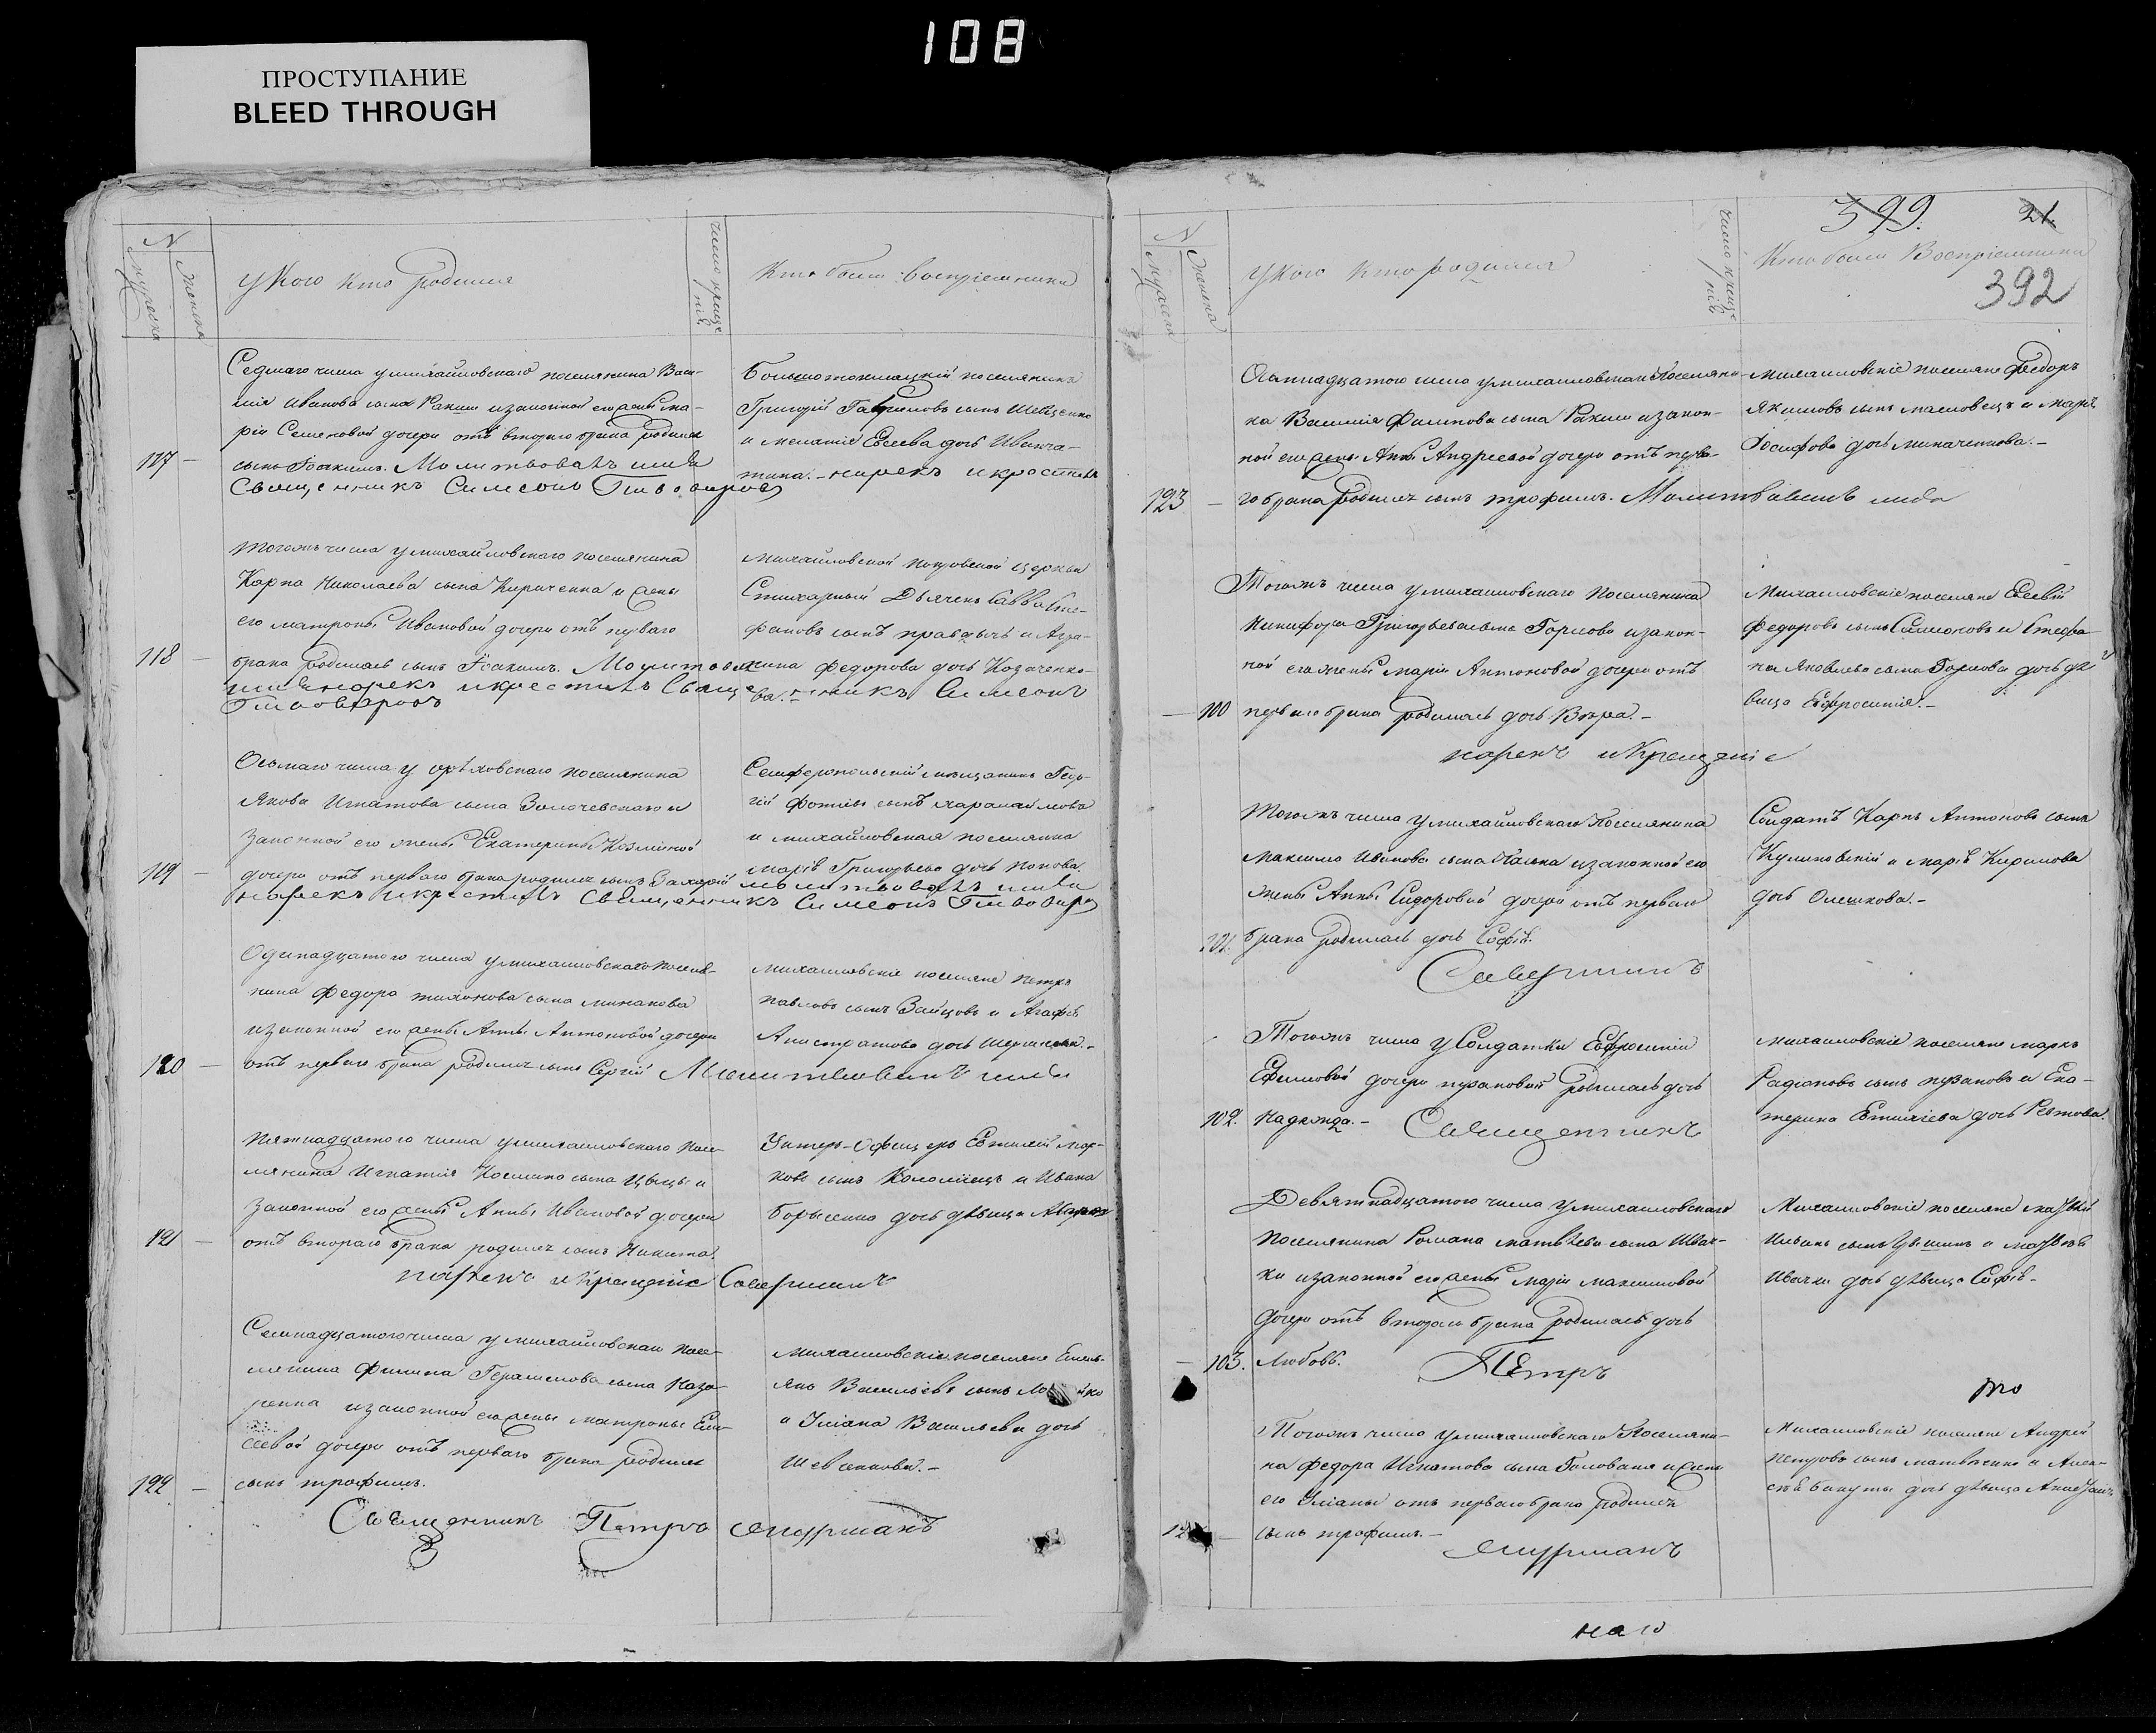 108
ПРОСТУПАНИЕ
BLEED THROUGH
N
мужеска
женска
у Кого кто родился
число креще
нія
Кто были воспріемники
Седмаго числа у михайловскаго поселянина Васи-
лія Иванова сына Ракши и законной его жены ма-
ріи Семеновой дочери отъ втораго брака родился
117 –
сынъ Іоакимъ. Молитвовалъ имя
Священникъ Симеонъ
Большотокмацкій поселянинъ
Григорій Гавриловъ сынъ Шевченко
и меланія Евсеева дочь Иванча-
нарекъ и крестилъ
Тогожъ числа у михайловскаго поселянина
Карпа Николаева сына Кириченка и жены
его матроны Ивановой дочери отъ перваго
118 –
брака родился сынъ Іоакимъ. Молитвовалъ
имя нарекъ и крестилъ Священникъ Симеонъ
михайловской покровской церкви
Стихарный Дьяченъ Савва Сте-
фановъ сынъ
федорова дочь Козаченко-
ва.
Осьмаго числа у орѣховскаго поселянина
Якова Игнатова сына Золочевскаго и
законной его жены Екатерины Козминой
119 –
дочери отъ перваго брака родился сынъ Захарій молитвовалъ имя
нарекъ и крестилъ Священникъ Симеонъ
Симферопольскій мѣщанинъ Геор-
гій Фотіевъ сынъ харалаймова
и михайловская поселянка
марія Григорьева дочь Попова.
Одинадцатого числа у михайловскаго поселя-
нина федора тихонова сына минакова
и законной его жены Анны Антоновой дочери
120 –
отъ перваго брака родился сынъ Сергій Молитвовалъ имя
михайловскіе поселяне петръ
павловъ сынъ Зайцовъ и Агафія
Апистратова дочь
Пятнадцатого числа у михайловскаго посе-
лянина Игнатія сына Цыцы и
законной его жены Анны Ивановой дочери
121 –
отъ втораго брака родился сынъ Никита.
нарекъ и крещеніе Совершилъ
Унтеръ-Офицеръ Евтихій мар-
ковъ сынъ Коломіецъ и Ивана
Борысенка дочь дѣвица
Семнадцатого числа у михайловскаго посе-
лянина Филипа Герасимова сына Наза-
ренка и законной его жены матроны Ели-
сеевой дочери отъ перваго брака родился
122 –
сынъ трофимъ.
Священникъ Петръ
михайловскіе поселяне Емель-
янъ Васильевъ сынъ
и Уліана Васильева дочь
Шевченкова.
399. 21.
392
N
мужеска
женска
у Кого кто родился
число креще
нія
Кто были Воспріемники
Осьмнадцатого числа у михайловскаго Поселяни-
на Василія Филипова сына Ракши и закон-
ной его жены Анны Андреевой дочери отъ перва-
123 –
го брака родился сынъ трофимъ. Молитвовалъ имя
михайловскіе поселяне федоръ
Якимовъ сынъ и марія
Іосифова дочь миначенкова.
Тогожъ числа у михайловскаго Поселянина
Никифора Григорьева сына Горлова и закон-
ной его жены маріи Антоновой дочери отъ
– 100
перваго брака родилась дочь Вѣра.
нарекъ и Крещеніе
Михайловскіе поселяне Евсевій
федоровъ сынъ и Стефа-
на Яковлева сына Горлова дочь дѣ-
вица Ефросинія.
Тогожъ числа у михайловскаго Поселянина
максима Иванова сына и законной его
жены Анны Сидоровой дочери отъ перваго
101.
брака родилась дочь Софія.
Совершилъ
Солдатъ Карпъ Антоновъ сынъ
Кулиновскій и марія Кирилова
дочь Олешкова.
Тогожъ числа у Солдатки Ефросиніи
Ефимовой дочери пузановой родилась дочь
102.
Надежда. Священникъ
михайловскіе поселяне маркъ
Радіоновъ сынъ пузановъ и Ека-
терина Евтихіева дочь
Девятнадцатого числа у михайловскаго
Поселянина Романа матвѣева сына Швач-
ки и законной его жены маріи максимовой
дочери отъ втораго брака родилась дочь
– 103.
Любовь. Петръ
Михайловскіе поселяне матвій
сынъ и матвѣя
Швачки дочь дѣвица Софія
то
Тогожъ числа у михайловскаго Поселяни-
на федора Игнатова сына Голованя и жены
его Уліаны отъ перваго брака родился
сынъ трофимъ.
Михайловскіе поселяне Андрей
петровъ сынъ матвѣенко и Алек-
сѣя дочь дѣвица
наго